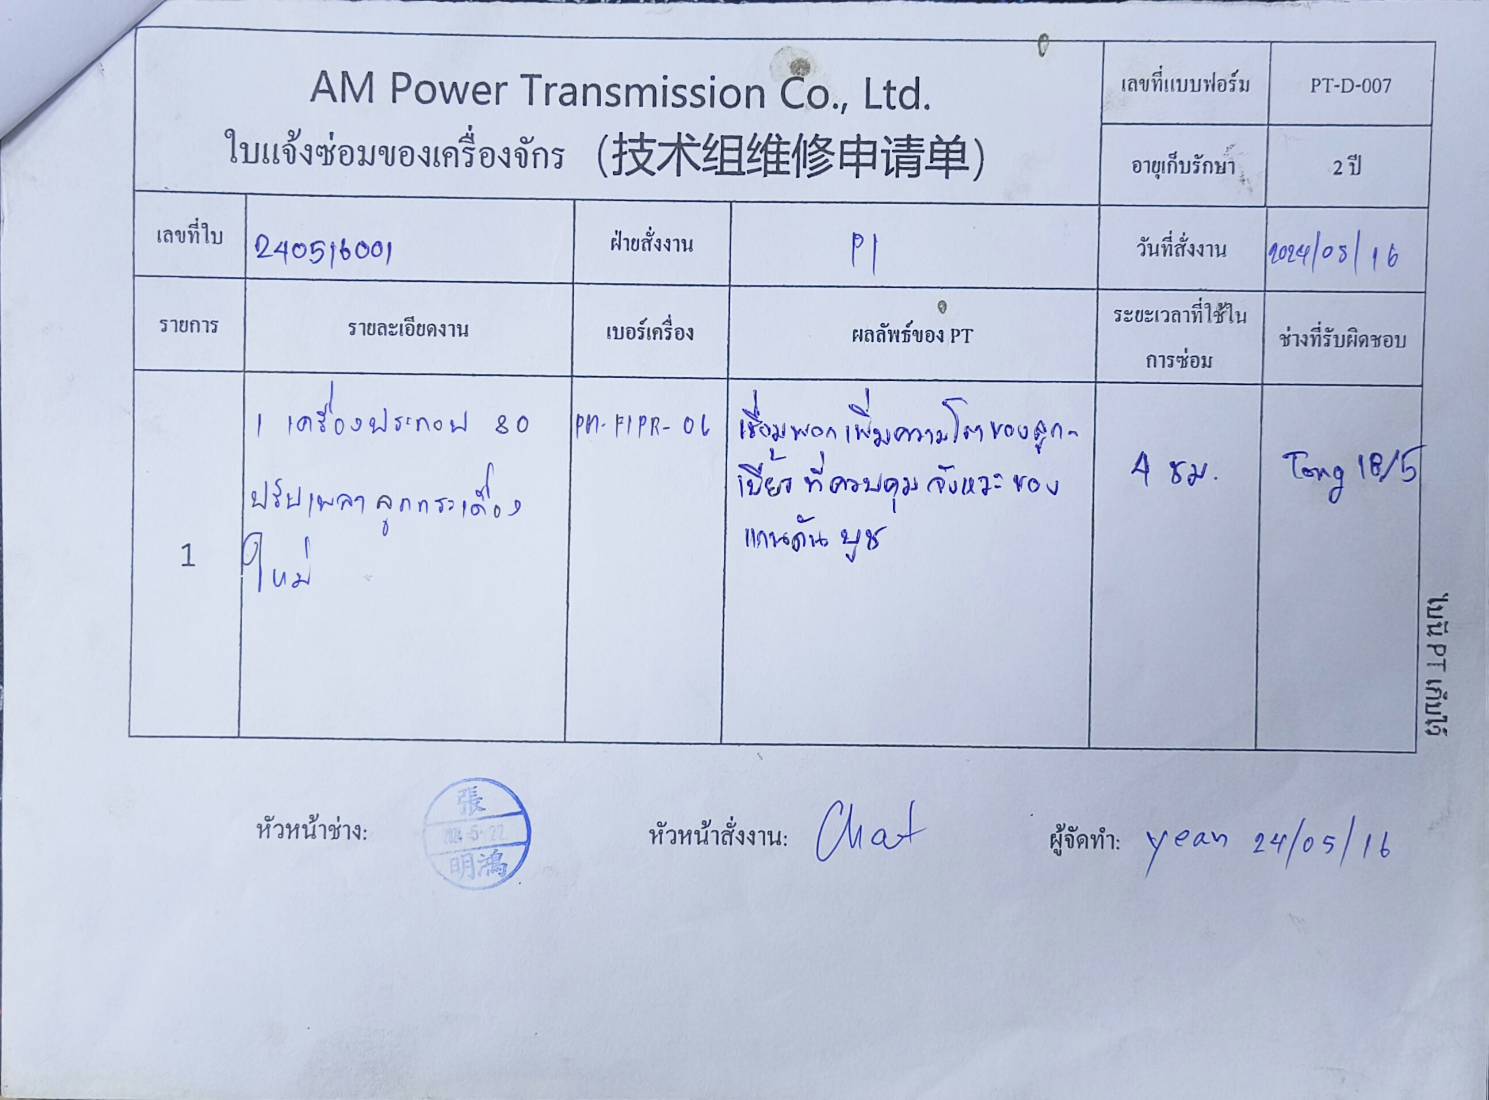 AM Power Transmission Co., Ltd.
ใบแจ้งซ่อมของเครื่องจักร (技术组维修申请单)
เลขที่แบบฟอร์ม
PT-D-007
อายุเก็บรักษา
2 ปี
เลขที่ใบ
240516001
ฝ่ายสั่งงาน
P1
วันที่สั่งงาน
2024/05/16
รายการ
รายละเอียดงาน
เบอร์เครื่อง
ผลลัพธ์ของ PT
ระยะเวลาที่ใช้ใน
การซ่อม
ช่างที่รับผิดชอบ
1
1 เครื่องประกอบ 80
ปรับเพลา ลูกกระเดื่อง
ใหม่
PM-FIPR-06
เชื่อมพอกเพิ่มความโตของลูก-
เบี้ยว ที่ควบคุมจังหวะของ
แกนดัน บูช
4 ชม.
Tong 18/5
ใบนี้ PT เก็บไว้
หัวหน้าช่าง:
張
明鴻
หัวหน้าสั่งงาน: Chat
ผู้จัดทำ: yean 24/05/16